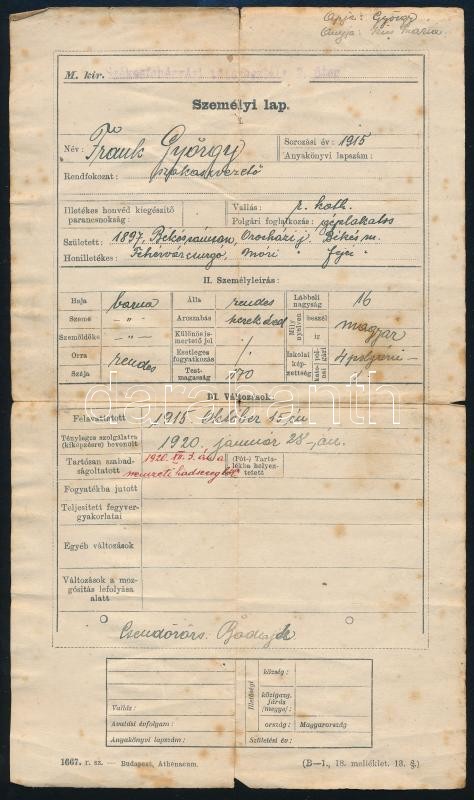 Apja: György
Anyja: Kiss Mária
M. kir.
Személyi lap.
I.
Név: Frank György
Sorozási év: 1915
Anyakönyvi lapszám:
Rendfokozat: szakaszvezető
Illetékes honvéd kiegészítő parancsnokság:
Vallás: r. kath.
Polgári foglalkozás: géplakatos
Született: 1897, Békéssámson, Orosházi j. Békés m.
Honilletékes: Fehérvárcsurgó, Móri " Fejér "
II. Személyleirás:
Haja barna
Álla rendes
Lábbeli nagyság 16
Szeme — " —
Arcszabás kerekded
Mily nyelven beszél ír magyar
Szemöldöke — " —
Különös ismertető jel
Orra rendes
Esetleges fogyatkozás
Iskolai képzettség polgári 4 polgári
katonai
Szája
Testmagasság 170
III. Változások:
Felavattatott 1915 Október 15-én
Tényleges szolgálatra (kiképzésre) bevonult 1920. január 28-án.
Tartósan szabadságoltatott 1920. XII. 3. án a nemzeti hadseregből
(Pót-) Tartalékba helyeztetett
Fogyatékba jutott
Teljesített fegyvergyakorlatai
Egyéb változások
Változások a mozgósítás lefolyása alatt
Csendőrörs. Bodajk
Illetőségi
község:
közigazg. járás /megye/:
ország: Magyarország
Vallás:
Avatási évfolyam:
Anyakönyvi lapszám:
Születési év:
1667. r. sz. — Budapest, Athenaeum.
(B—1., 18. melléklet. 13. §.)
darabanth